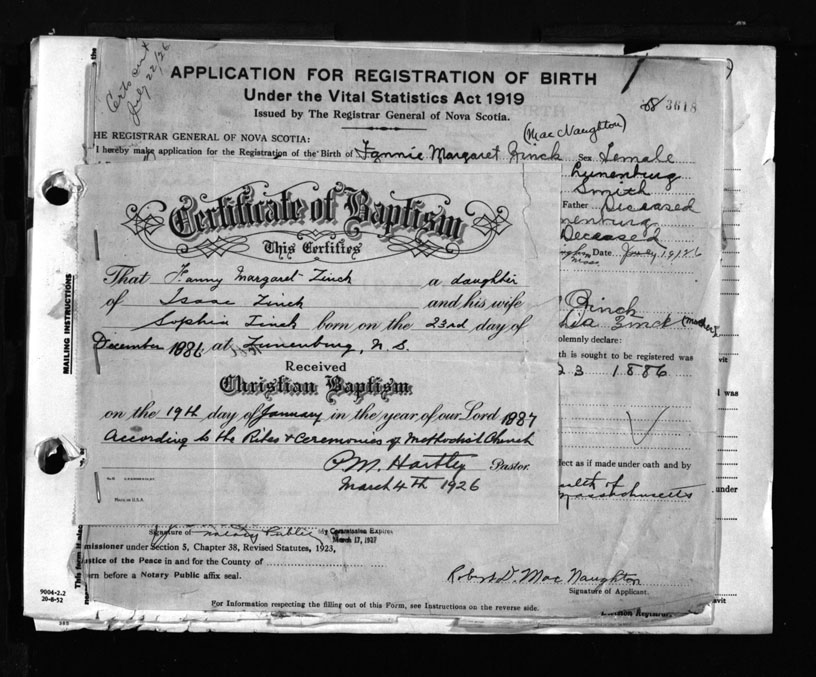 Certs sent
July 22/26
APPLICATION FOR REGISTRATION OF BIRTH
Under the Vital Statistics Act 1919
Issued by The Registrar General of Nova Scotia.
3618
(Mac Naughton)
HE REGISTRAR GENERAL OF NOVA SCOTIA:
I hereby make application for the Registration of the Birth of Fannie Margaret Zinck Sex Female
Lunenburg
Smith
Father Deceased
nenburg
Deceased
Date
Certificate of Baptism
This Certifies
That Fanny Margaret Zinck a daughter
of Isaac Zinck and his wife
Sophia Zinck born on the 23rd day of
December 1886 at Lunenburg, N.S.
Received
Christian Baptism
on the 19th day of January in the year of our Lord 1887
According to the Rites & Ceremonies of Methodist Church
P.M. Hartley Pastor.
March 4th 1926
MADE IN U.S.A.
Zinck
Zinck (mother)
olemnly declare:
th is sought to be registered was
23 1886
vit
l was
fect as if made under oath and by
ealth of
Massachusetts
under
MAILING INSTRUCTIONS
Signature of Notary Public My Commission Expires
March 17, 1927
missioner under Section 5, Chapter 38, Revised Statutes, 1923,
stice of the Peace in and for the County of
rn before a Notary Public affix seal.
Robert D. Mac Naughton
Signature of Applicant.
9004-2.2
20-8-52
For Information respecting the filling out of this Form, see Instructions on the reverse side.
Division Registrar
vit